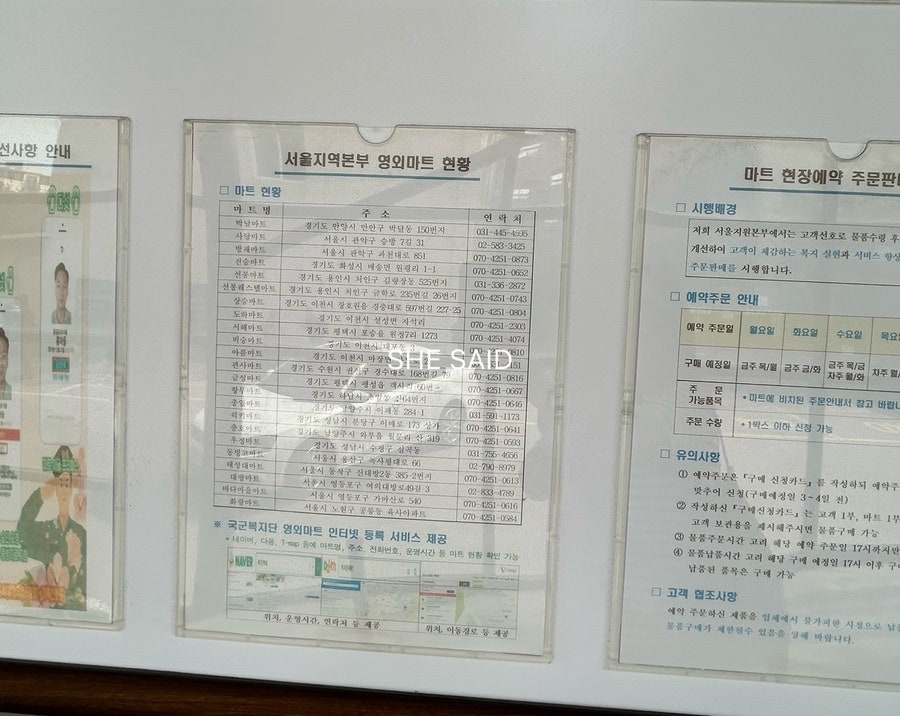 선사항 안내
서울지역본부 영외마트 현황
□ 마트 현황
마트명 주소 연락처
박달마트 경기도 안양시 만안구 박달동 150번지 031-445-4595
사당마트 서울시 관악구 승방 7길 31 02-583-3425
방패마트 서울시 관악구 과천대로 851 070-4251-0873
전승마트 경기도 화성시 매송면 원평리 1-1 070-4251-0652
선봉마트 경기도 용인시 처인구 김량장동 525번지 031-336-2872
선봉레스텔마트 경기도 용인시 처인구 금학로 235번길 26번지 070-4251-0743
상승마트 경기도 이천시 장호원읍 경충대로 597번길 227-25 070-4251-0804
도하마트 경기도 이천시 설성면 자석리 070-4251-2303
서해마트 경기도 평택시 포승읍 원정7리 1273 070-4251-4074
비승마트 경기도 이천시 대포동
아름마트 경기도 이천시
관사마트 경기도 수원시 권선구 경수대로 168번길 070-4251-0816
금성마트 경기도 평택시 팽성읍 객사리 60번 070-4251-0667
경기도 하남시 64번지 070-4251-0646
경기도 남양주시 이패동 284-1 031-591-1173
럭키마트 경기도 성남시 분당구 이매로 173 상가 070-4251-0641
경기도 남양주시 와부읍 월문리 산 319 070-4251-0593
우정마트 경기도 성남시 수정구 심곡동 031-756-4656
동빙고마트 서울시 용산구 녹사평대로 66 02-790-8979
해성대마트 서울시 동작구 신대방2동 385-2번지 070-4251-0613
대방마트 서울시 영등포구 여의대방로49길 3 02-833-4789
바다마을마트 서울시 영등포구 가마산로 540 070-4251-0616
화랑마트 서울시 노원구 공릉동 육사아파트 070-4251-0584
SHE SAID
※ 국군복지단 영외마트 인터넷 등록 서비스 제공
• 네이버, 다음, T-map 등에 마트명, 주소, 전화번호, 운영시간 등 마트 현황 확인 가능
NAVER
위치, 운영시간, 연락처 등 제공 위치, 이동경로 등 제공
마트 현장예약 주문판
□ 시행배경
저희 서울지원본부에서는 고객선호로 물품수량 후
개선하여 고객이 체감하는 복지 실현과 서비스 향상
주문판매를 시행합니다.
□ 예약주문 안내
예약 주문일 월요일 화요일 수요일 목요
구매 예정일 금주 목/월 금주 금/화 금주 목/금 차주 월/화 차주 월
주문 가능품목 • 마트에 비치된 주문안내서 참고 바랍니
주문 수량 • 1박스 이하 신청 가능
□ 유의사항
① 예약주문은 『구매 신청카드』를 작성하되 예약주
맞추어 신청(구매예정일 3~4일 전)
② 작성하신 『구매신청카드』는 고객 1부, 마트 1부
고객 보관용을 제시해주시면 물품구매 가능
③ 물품주문시간 고려 해당 예약 주문일 17시까지만
④ 물품납품시간 고려 해당 구매 예정일 17시 이후 구
납품된 품목은 구매 가능
□ 고객 협조사항
예약 주문하신 제품을 업체에서 불가피한 사정으로 납
물품구매가 제한될수 있음을 양해 바랍니다.